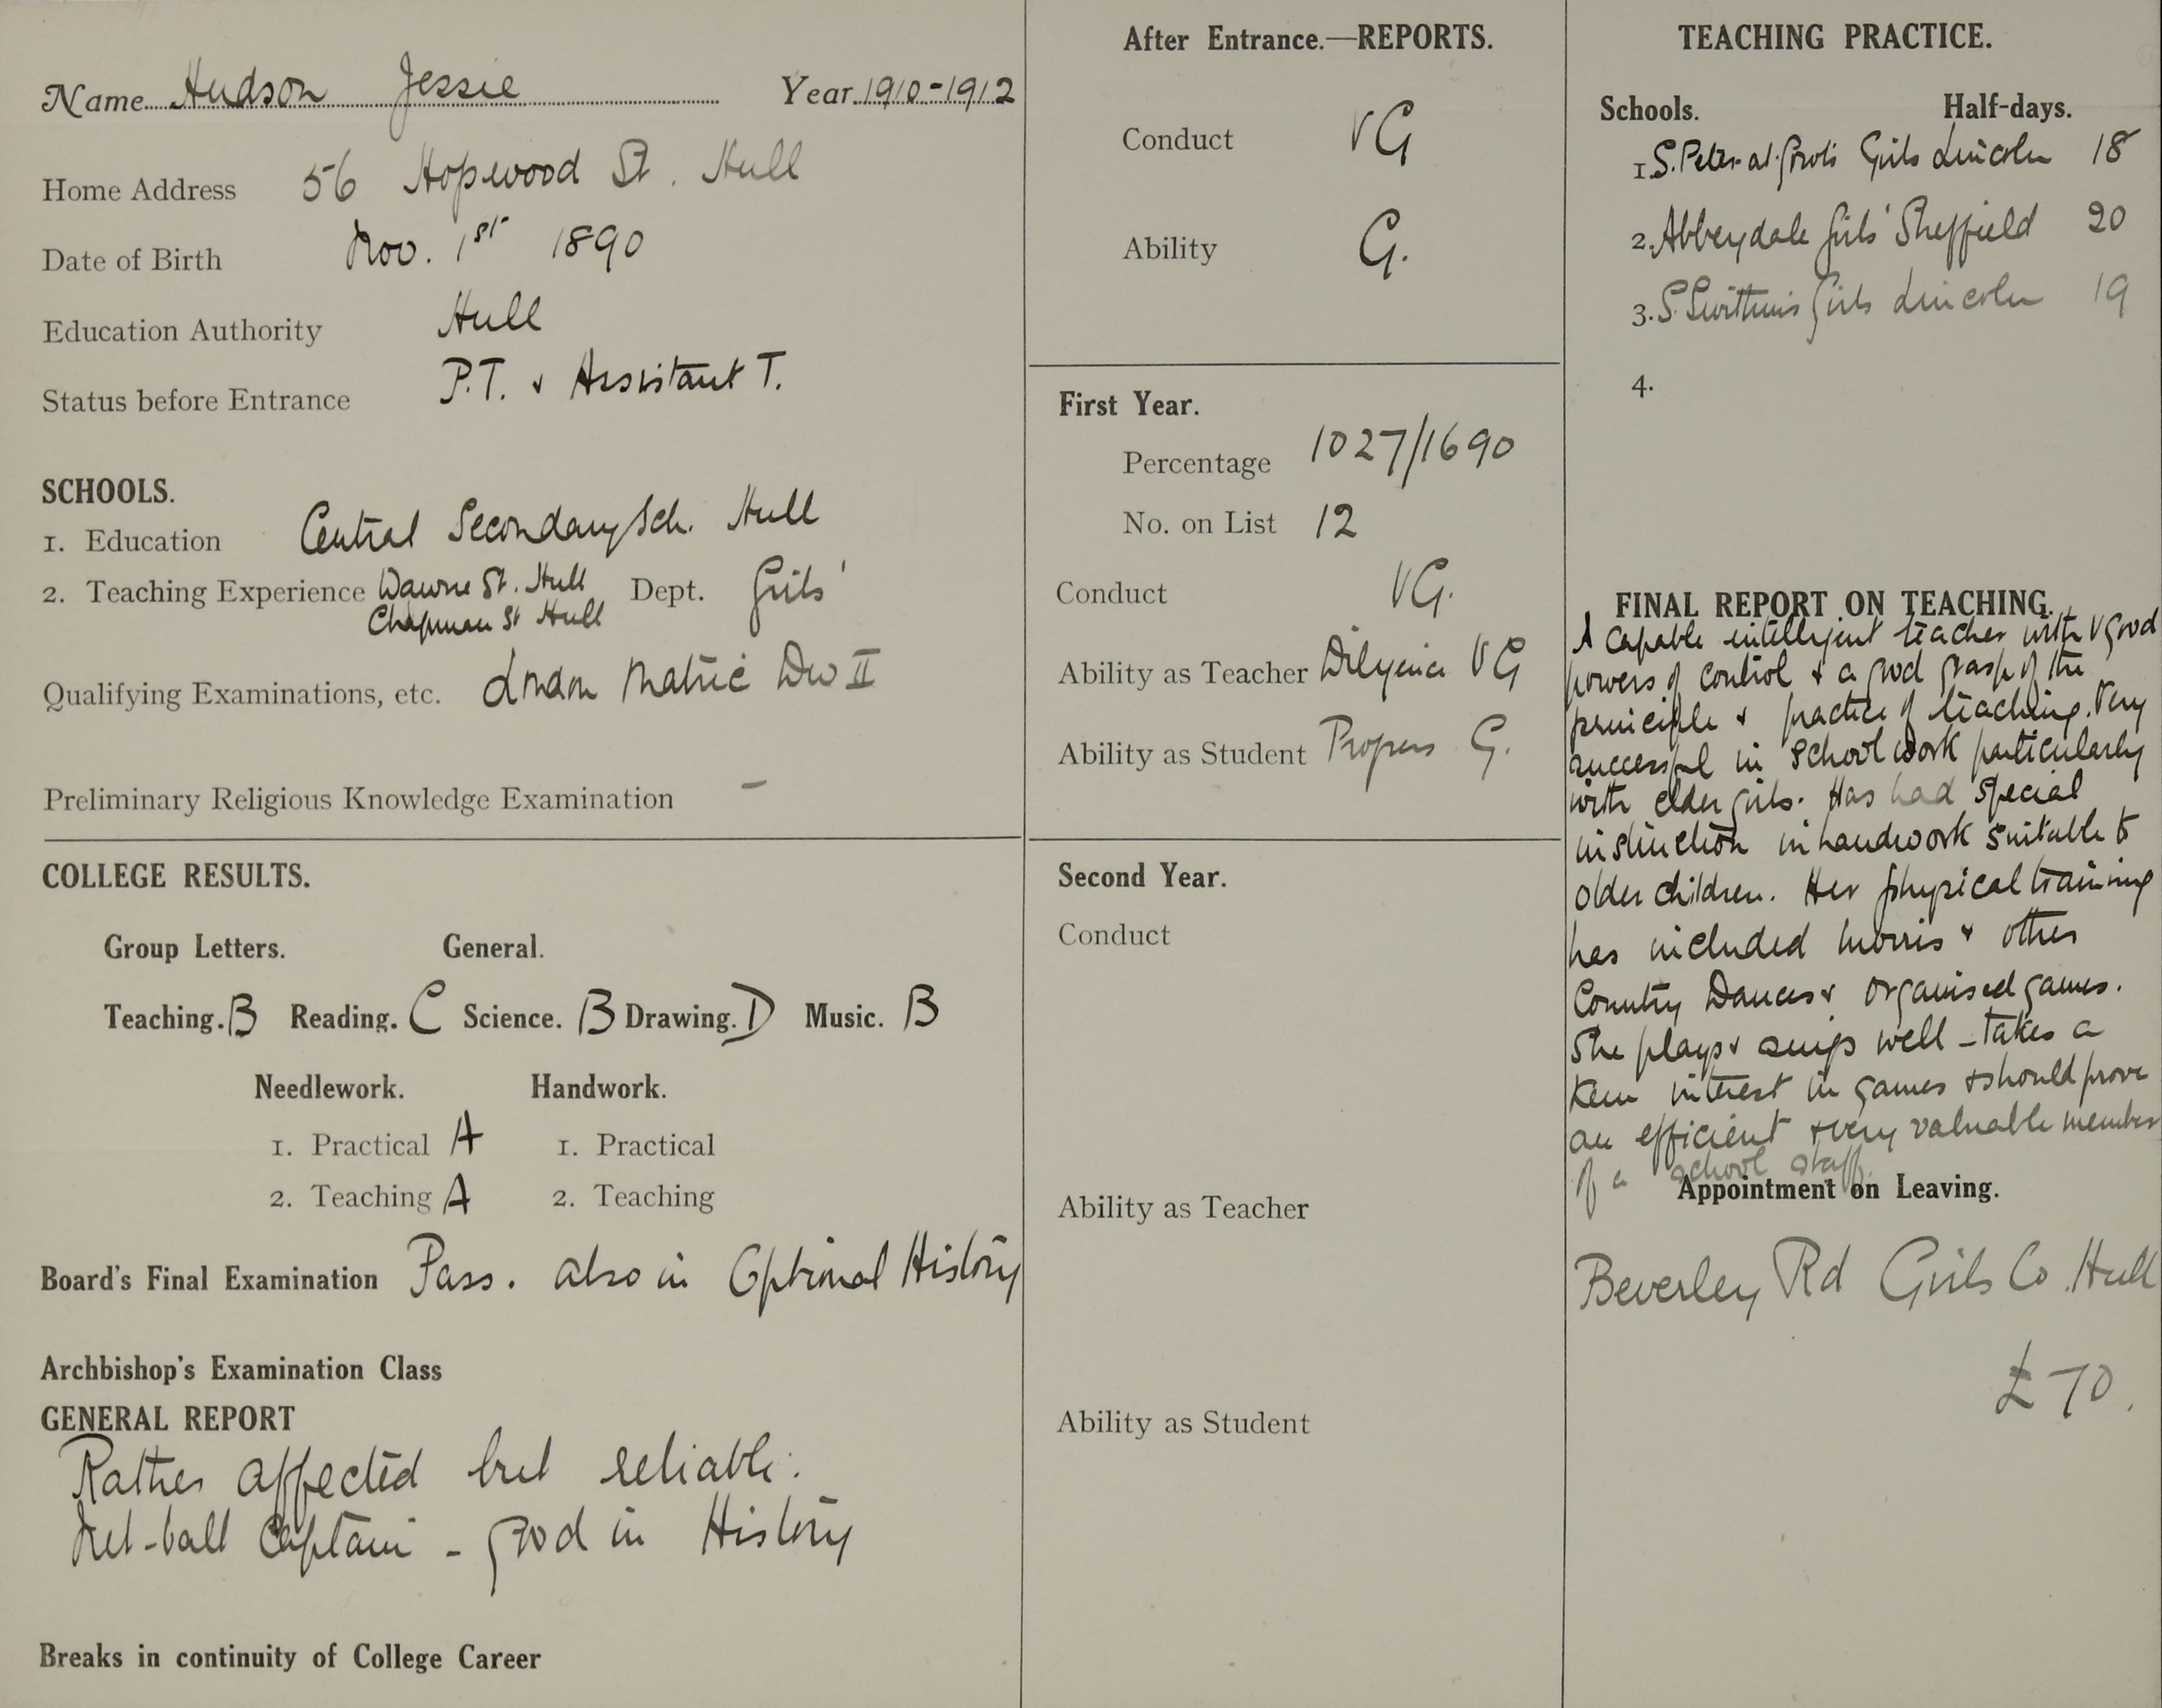 Name Hudson Jessie Year 1910-1912
Home Address 56 Hopwood St. Hull
Date of Birth Nov. 1st 1890
Education Authority Hull
Status before Entrance P.T. & Assistant T.
SCHOOLS.
1. Education Central Secondary Sch. Hull
2. Teaching Experience Dawne St. Hull Dept. Girls'
Chapman St Hull
Qualifying Examinations, etc. London Matric Div II
Preliminary Religious Knowledge Examination -
COLLEGE RESULTS.
Group Letters. General.
Teaching. B Reading. C Science. B Drawing. D Music. B
Needlework. Handwork.
1. Practical A 1. Practical
2. Teaching A 2. Teaching
Board's Final Examination Pass. also in Optional History
Archbishop's Examination Class
GENERAL REPORT
Rather affected but reliable.
Net-ball Captain - good in History
Breaks in continuity of College Career
After Entrance.—REPORTS.
Conduct VG
Ability G.
First Year.
Percentage 1027/1690
No. on List 12
Conduct VG.
Ability as Teacher Diligence VG
Ability as Student Progress G.
Second Year.
Conduct
Ability as Teacher
Ability as Student
TEACHING PRACTICE.
Schools. Half-days.
1. S. Peter at Gowts Girls Lincoln 18
2. Abbeydale Girls' Sheffield 20
3. S. Swithin's Girls Lincoln 19
4.
FINAL REPORT ON TEACHING.
A capable intelligent teacher with V good
powers of control & a good grasp of the
principle & practice of teaching. Very
successful in school work particularly
with elder girls. Has had special
instruction in handwork suitable to
older children. Her physical training
has included morris & other
Country Dances & organised games.
She plays & sings well - takes a
keen interest in games & should prove
an efficient & very valuable member
of a school staff.
Appointment on Leaving.
Beverley Rd Girls Co. Hull
£70.